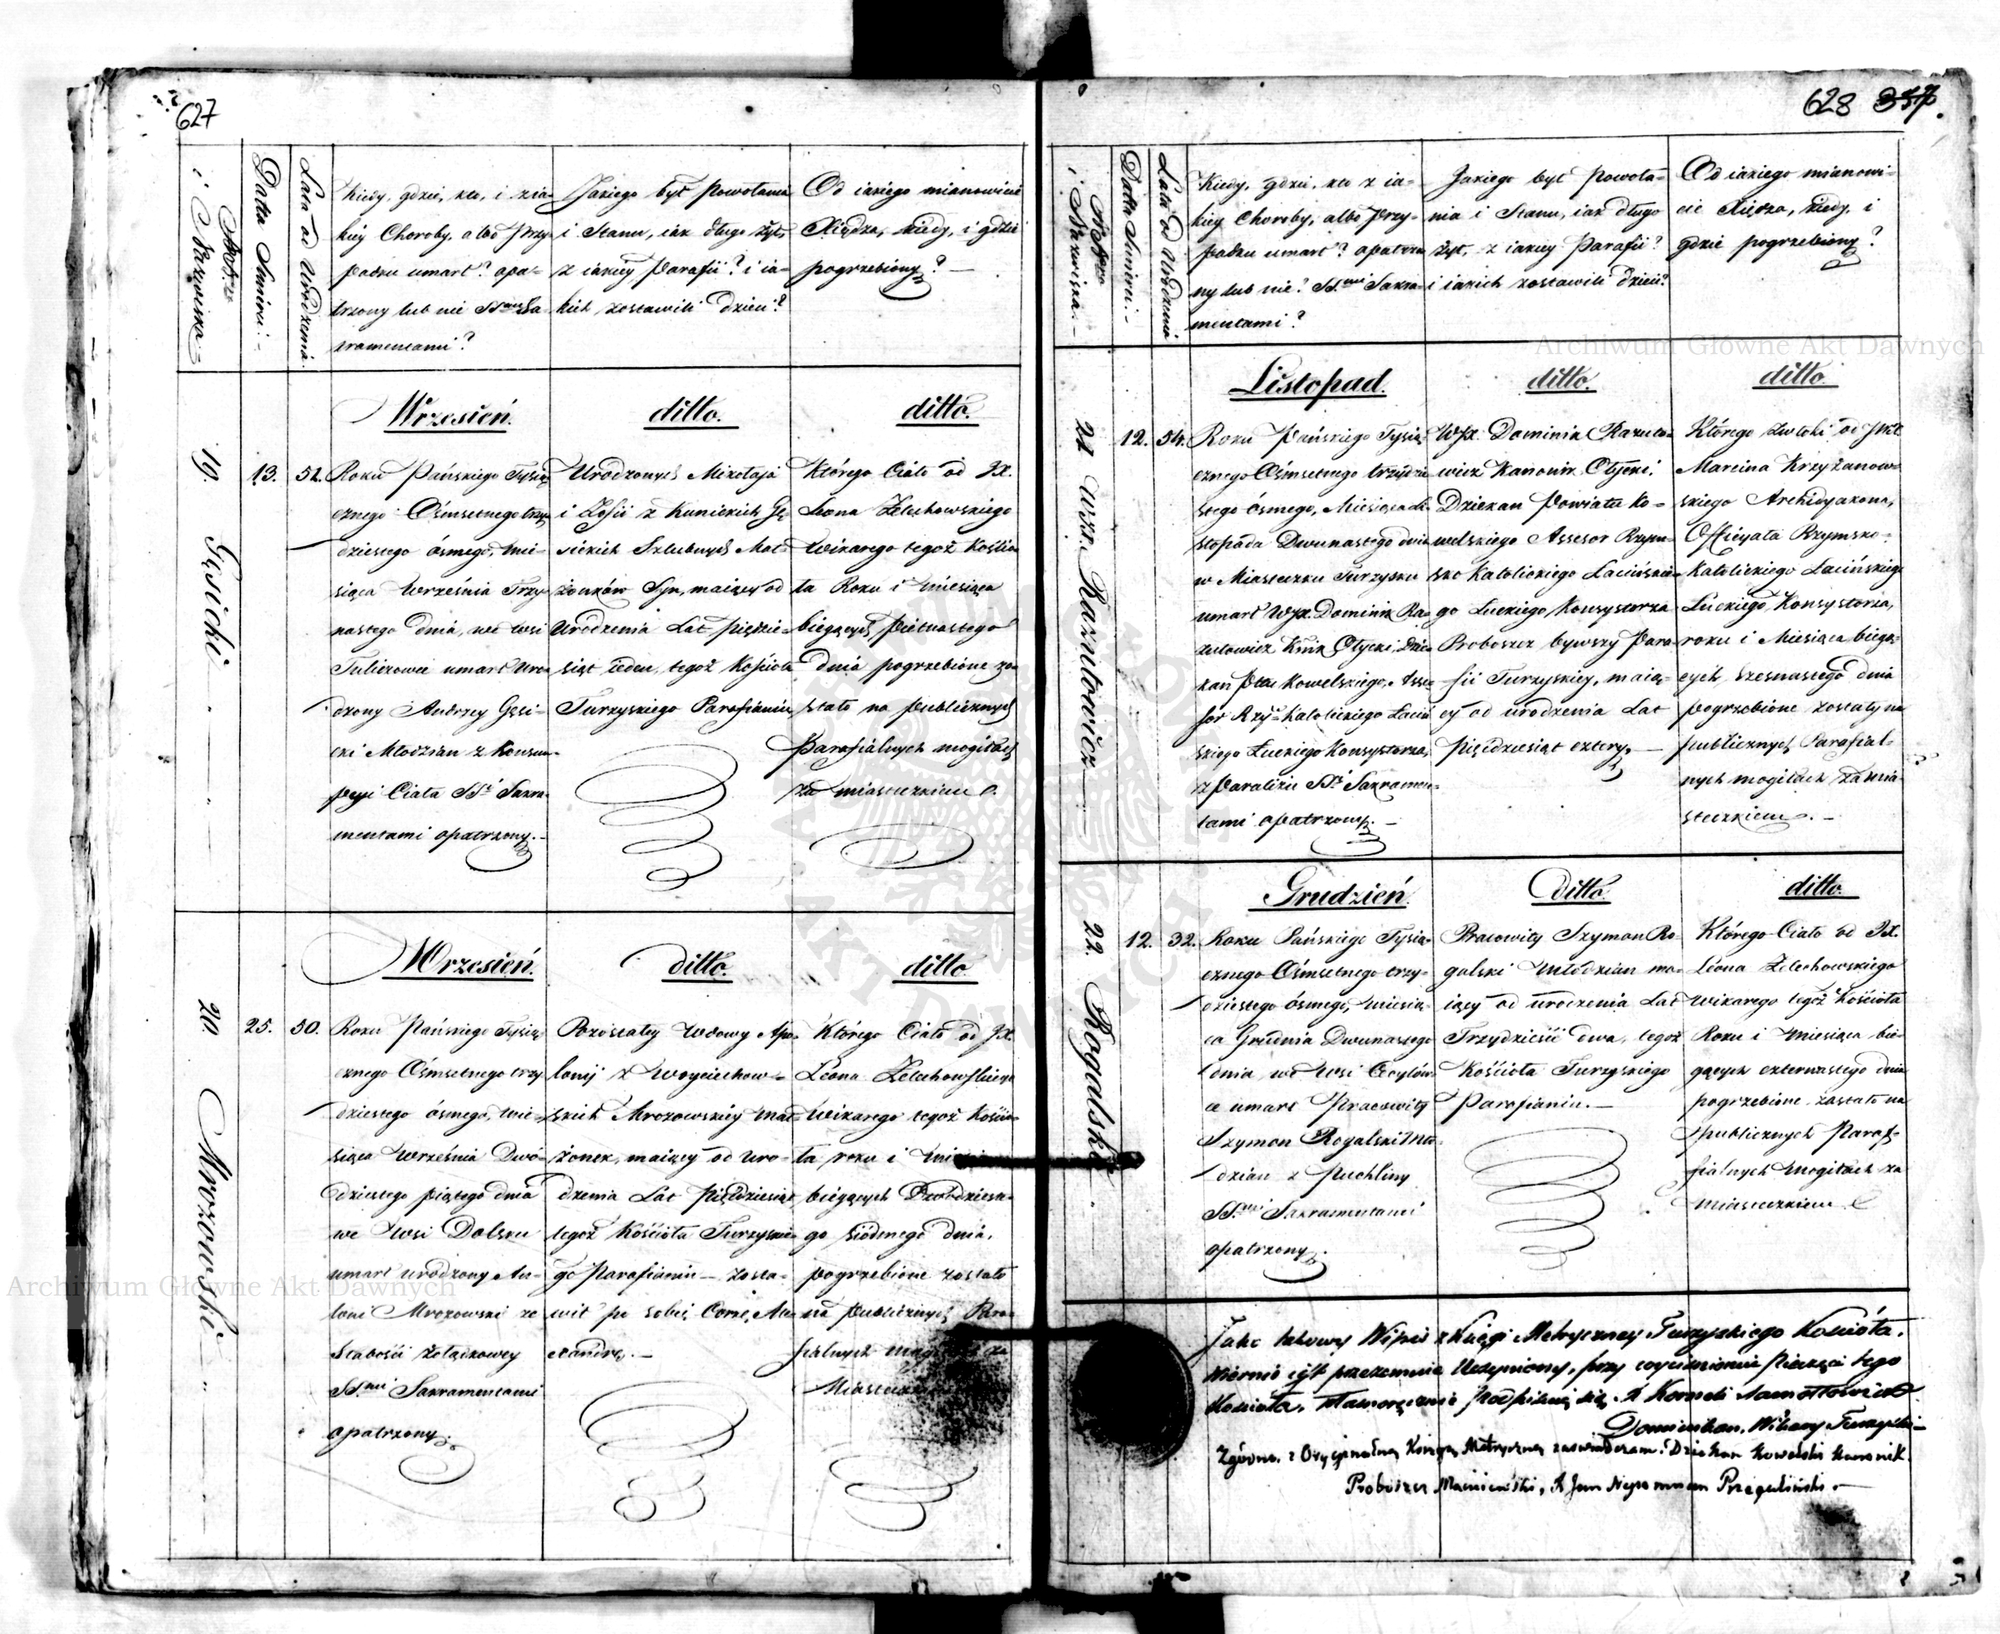 627
N-o
i Nazwiska
Data Śmierci
Lata od Urodzenia
Kiedy, gdzie, kto, i z ia-
kiéy Choroby, albo Przy-
padku umarł? opa-
trzony lub nie SS-mi Sa-
kramentami?
Jakiego był Powołania
i Stanu, iak długo żył,
z iakiéy Parafii? i ia-
kich zostawili Dzieci?
Od iakiego mianowicie
Xiędza, kiedy, i gdzie
pogrzebiony?
19. Gąsicki
13.
52.
Wrzesień.
Roku Pańskiego Tysią
cznego Ośmsetnego trzy
dziestego ósmego, Mie-
siąca Września Trzy-
nastego dnia, we wsi
umarł Uro-
dzony Andrzey Gąsi-
cki Młodzian z Konsum-
pcyi Ciała SS. Sakra-
mentami opatrzony.
ditto.
Urodzonych Mikołaja
i Zofii z Kunickich Gą
sickich Szlubnych Mał-
żonków Syn, maiący od
Urodzenia Lat pięćdzie-
siąt ieden, tegoż Kościoła
Turzyskiego Parafianin
ditto.
Którego Ciało od JX.
Leona Żelechowskiego
Wikarego tegoż Kościo
ła Roku i Miesiąca
bieżących piętnastego
dnia pogrzebione zo-
stało na publicznych
Parafialnych mogiłach
za miasteczkiem
20 Mrozowski
25.
50.
Wrzesień.
Roku Pańskiego Tysią
cznego Ośmsetnego trzy
dziestego ósmego, mie-
siąca Września Dwó-
dziestego piątego dnia
we Wsi Dolsku
umarł urodzony An-
toni Mrozowski ze
Słabości żołądkowey
SS-mi Sakramentami
opatrzony.
ditto.
Pozostałey Wdowy Apo
lonij z Woyciechow-
skich Mrozowskiéy mał
żonek, maiący od Uro-
dzenia Lat Pięćdziesiąt
tegoż Kościoła Turzyskie-
go Parafianin — zosta-
wił po sobie Corkę Ale
xandrę. —
ditto
Którego Ciało od JX.
Leona Żelechowskiego
Wikarego tegoż Kościo-
ła roku i
bieżących Dwódzieste-
go siódmego dnia,
pogrzebione zostało
na publicznych Para-
fialnych
628 317.
N-o
i Nazwiska
Data Śmierci
Lata od Urodzenia
Kiedy, gdzie, kto z ia-
kiéy Choroby, albo Przy-
padku umarł? opatrzo
ny lub nie? SS-mi Sakra-
mentami?
Jakiego był Powoła-
nia i Stanu, iak długo
żył, z iakiéy Parafii?
i iakich zostawili dzieci?
Od iakiego mianowi-
cie Xiędza, kiedy, i
gdzie pogrzebiony?
21 Razutowicz
12.
54.
Listopad.
Roku Pańskiego Tysią-
cznego Ośmsetnego trzydzie
stego ósmego, Miesiąca Li-
stopada Dwunastego dnia
w Miasteczku Turzysku
umarł WJX. Dominik Ra-
zutowicz Ołycki, Dzie-
kan Kowelskiego, Asse-
sor Rzy. Katolickiego Łaciń
skiego Łuckiego Konsystorza,
z Paraliżu SS. Sakramen-
tami opatrzony. —
ditto.
WJX. Dominik Razuto-
wicz Kanonik Ołycki,
Dziekan Powiatu Ko-
welskiego Assesor Rzym-
sko Katolickiego Łacińskie-
go Łuckiego Konsystorza
Proboszcz bywszy Para
fii Turzyskiey, maią-
cy od urodzenia Lat
Pięćdziesiąt cztery. —
ditto.
Którego zwłoki od
Marcina Krzyżanow-
skiego Archidyakona,
Officyała Rzymsko-
Katolickiego Łacińskiego
Łuckiego Konsystorza,
roku i Miesiąca bieżą-
cych szesnastego dnia
pogrzebione zostały na
publicznych Parafial-
nych mogiłach za mia-
steczkiem. —
22. Rogalski
12.
32.
Grudzień
Roku Pańskiego Tysią-
cznego Ośmsetnego trzy-
dziestego ósmego, miesią-
ca Grudnia Dwunastego
dnia, we Wsi
umarł Pracowity
Szymon Rogalski Mło-
dzian z Puchliny
SS-mi Sakramentami
opatrzony.
Ditto.
Pracowity Szymon Ro-
galski Młodzian ma-
iący od urodzenia Lat
Trzydzieści dwa, tegoż
Kościoła Turzyskiego
Parafianin. —
ditto.
Którego Ciało od JX.
Léona Żelechowskiego
Wikarego tegoż Kościoła
Roku i Miesiąca bie-
żących czternastego dnia
pogrzebione zostało na
publicznych Paraf-
fialnych Mogiłach za
miasteczkiem
Jako takowy Wypis z Księgi Metryczney Turzyskiego Kościoła,
wiernie iest przezemnie Uczyniony, przy wyciśnieniu Pieczęci tego
Kościoła, własnoręcznie podpisuię się. X Korneli
Dominikan, Wikary Turzyski —
Zgodno z Oryginalną Księgą Metryczną zaświadczam. Dziekan Kowelski Kanonik
Proboszcz Maciejowski, X Jan Nepomucen —
Archiwum Główne Akt Dawnych
Archiwum Główne Akt Dawnych